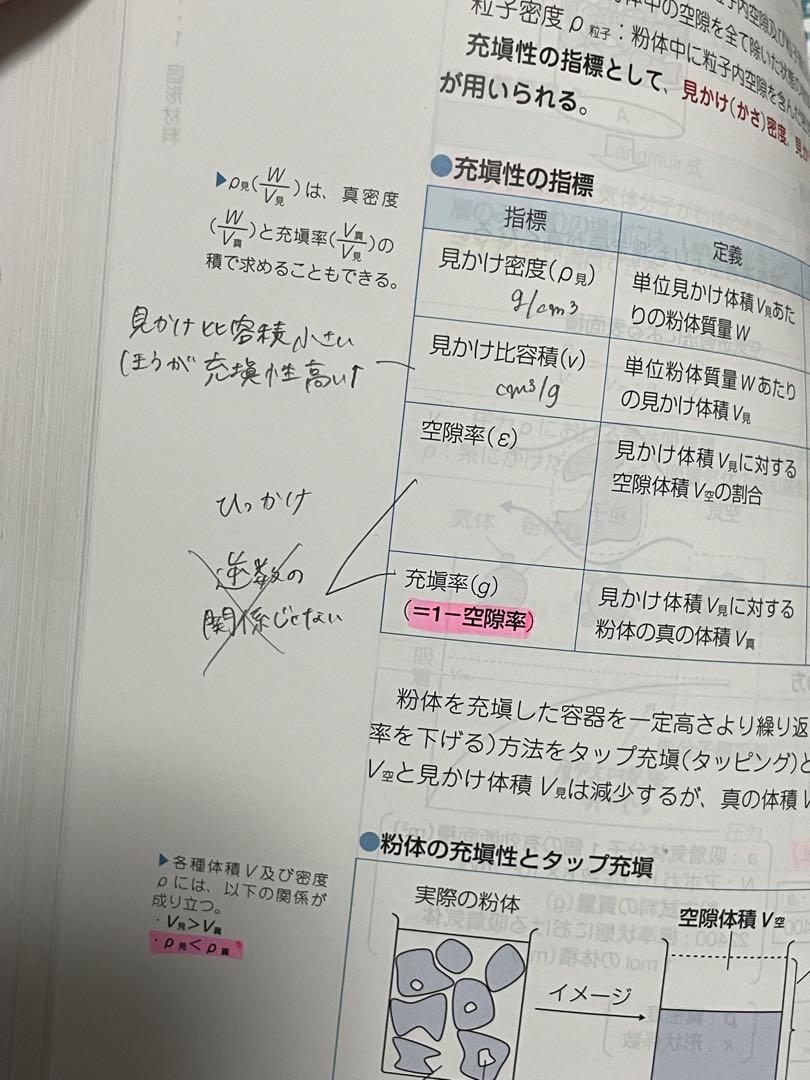 粒子密度ρ粒子：粉体中に粒子内空隙を含んだ
充塡性の指標として、見かけ(かさ)密度、見か
が用いられる。
▶ρ見(W/V見)は、真密度
(W/V真)と充塡率(V真/V見)の
積で求めることもできる。
●充塡性の指標
指標 定義
見かけ密度(ρ見) g/cm³
単位見かけ体積V見あた
りの粉体質量W
見かけ比容積(v) cm³/g
単位粉体質量Wあたり
の見かけ体積V見
空隙率(ε)
見かけ体積V見に対する
空隙体積V空の割合
充塡率(g)
(＝1－空隙率)
見かけ体積V見に対する
粉体の真の体積V真
見かけ比容積小さい
ほうが充塡性高い↑
ひっかけ
逆数の
関係じゃない
粉体を充塡した容器を一定高さより繰り返
率を下げる)方法をタップ充塡(タッピング)と
V空と見かけ体積V見は減少するが、真の体積V
▶各種体積V及び密度
ρには、以下の関係が
成り立つ。
・V見＞V真
・ρ見＜ρ真
●粉体の充塡性とタップ充塡
実際の粉体
イメージ
空隙体積V空